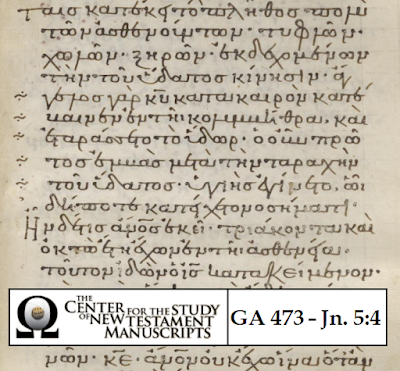 ταις κατέκειτο πλῆθος πολὺ
τῶν ἀσθενούντων· τυφλῶν·
χωλῶν· ξηρῶν· ἐκδεχομένων
τὴν τοῦ ὕδατος κίνησιν· ἄγ
γελος γὰρ κ̅υ̅ κατὰ καιρὸν κατέ
βαινεν ἐν τῆ κολυμβήθρα, καὶ
ἐταράσσετο τὸ ὕδωρ· ὁ οὖν πρῶ
τος ἐμβὰς μετὰ τὴν ταραχὴν
τοῦ ὕδατος· ὑγιὴς ἐγίνετο, ὧι
δήποτε κατείχετο νοσήματι·
Ἦν δέ τις ἄ̅ν̅ο̅ς̅ ἐκεῖ· τριάκοντα καὶ
ὀκτὼ ἔτη ἔχων ἐν τῆ ἀσθενεία·
τοῦτον ἰδὼν ὁ ι̅ς̅ κατακείμενον·
THE CENTER FOR THE STUDY OF NEW TESTAMENT MANUSCRIPTS
GA 473 - Jn. 5:4
κ̅ε̅· ἄ̅ν̅ο̅ν̅ οὐκ ἔχω ἵνα ὅταν